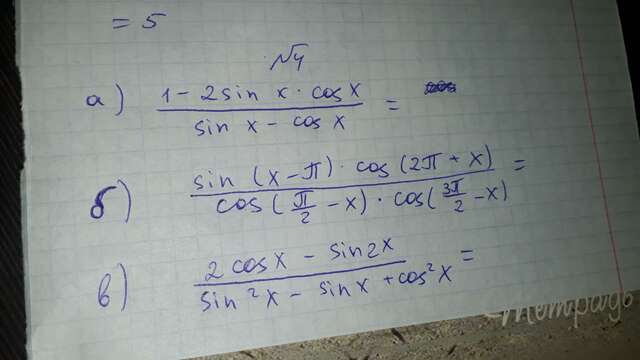 = 5
№4
а) (1 - 2 sin x · cos x) / (sin x - cos x) =
б) (sin (x - π) · cos (2π + x)) / (cos (π/2 - x) · cos (3π/2 - x)) =
в) (2 cos x - sin 2x) / (sin²x - sin x + cos²x) =